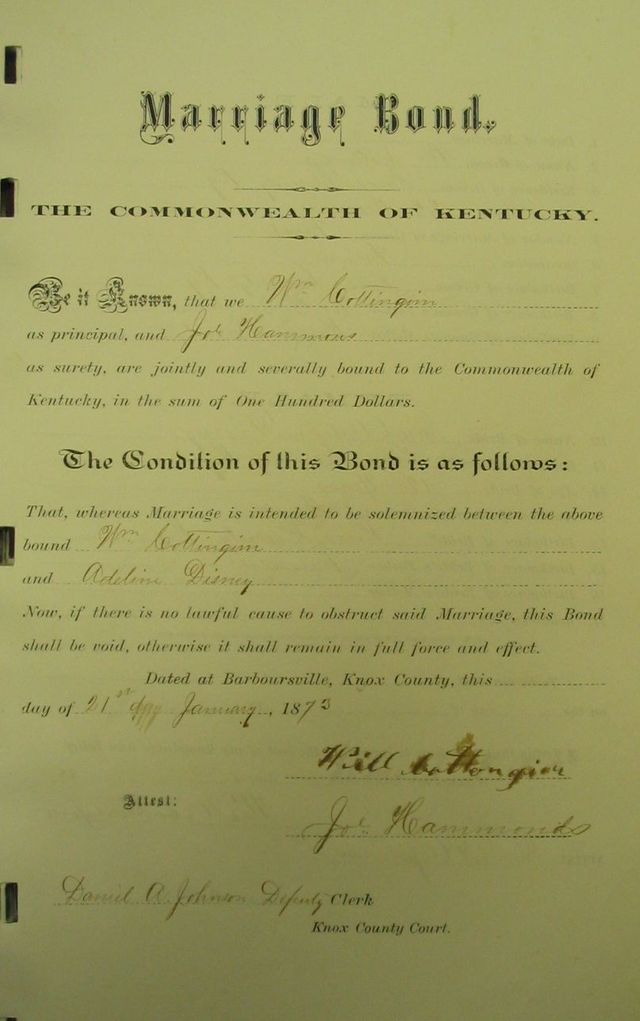 Marriage Bond.
THE COMMONWEALTH OF KENTUCKY.
Be it Known, that we Wm Cottingim
as principal, and Jos Hammons
as surety, are jointly and severally bound to the Commonwealth of
Kentucky, in the sum of One Hundred Dollars.
The Condition of this Bond is as follows:
That, whereas Marriage is intended to be solemnized between the above
bound Wm Cottingim
and Adeline Disney
Now, if there is no lawful cause to obstruct said Marriage, this Bond
shall be void, otherwise it shall remain in full force and effect.
Dated at Barboursville, Knox County, this
day of 21st January, 1873
Will Cottongim
Attest:
Jos Hammonds
Daniel A. Johnson Deputy Clerk
Knox County Court.